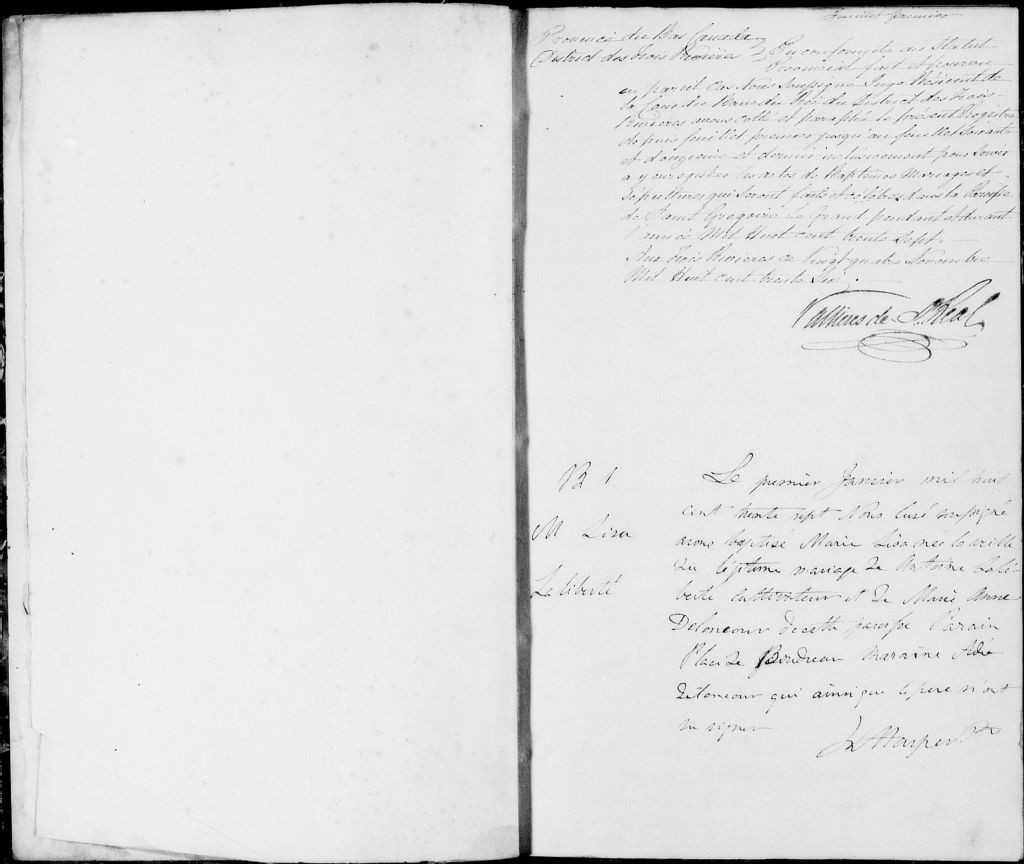 feuillet premier
Province du Bas Canada
District des Trois Rivières
En conformité au Statut
Provincial fait et pourvu
en pareil cas Nous Soussigné Juge Résident de
la Cour du Banc du Roi du District des Trois
Rivières avons cotté et paraphé le présent Registre
depuis feuillet premier jusqu'au feuillet soixante
et et dernier inclusivement pour servir
à y enregistrer les actes de Baptêmes Mariages et
Sépultures qui seront faits et célébrés dans la Paroisse
de Saint Grégoire le Grand pendant et durant
l'année Mil Huit cent trente Sept.
Aux Trois Rivières ce Vingt quatre Novembre
Mil Huit cent trente Six.
Vallières de St Réal
B 1
M Lisa
Laliberté
Le premier Janvier mil huit
cent trente sept Nous Curé soussigné
avons baptisé Marie Lisa née la veille
du légitime mariage de Antoine Lali
berté cultivateur et de Marie Anne
de cette paroisse Parain
Placide Boudreau maraine
qui ainsi que le pere n'ont
su signer
Harper Ptr